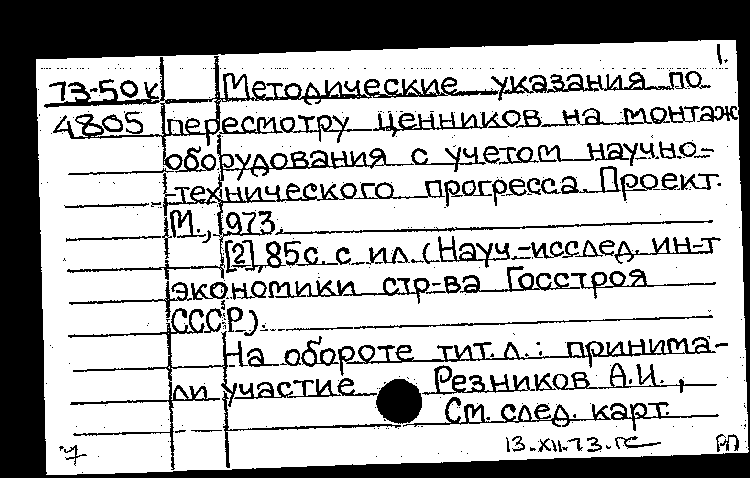 1.
73-50к Методические указания по
4805 пересмотру ценников на монтаж
оборудования с учетом научно-
-технического прогресса. Проект.
М., 1973.
[2], 85с. с ил. (Науч.-исслед. ин-т
экономики стр-ва Госстроя
СССР).
На обороте тит. л.: принима-
ли участие Резников А.И.,
См. след. карт.
13.XII.73.гс РП